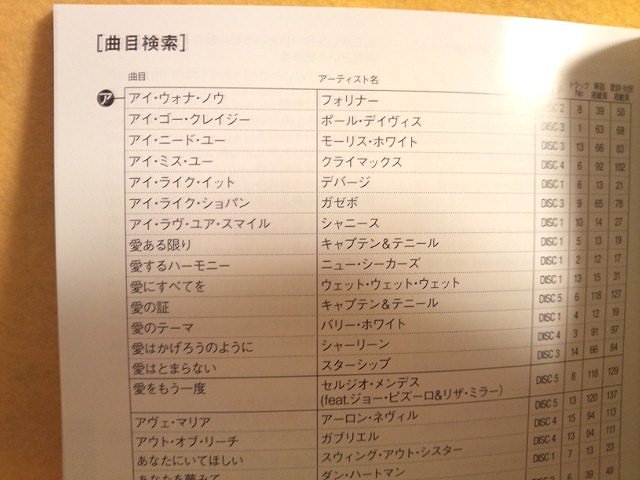 [曲目検索]
曲目 アーティスト名 トラックNo 解説掲載頁 歌詞・対訳掲載頁
ア アイ・ウォナ・ノウ フォリナー 2 8 39 50
アイ・ゴー・クレイジー ポール・デイヴィス DISC 3 1 63 68
アイ・ニード・ユー モーリス・ホワイト DISC 3 13 66 83
アイ・ミス・ユー クライマックス DISC 4 6 92 102
アイ・ライク・イット デバージ DISC 1 6 13 21
アイ・ライク・ショパン ガゼボ DISC 3 9 65 78
アイ・ラヴ・ユア・スマイル シャニース DISC 1 10 14 27
愛ある限り キャプテン&テニール DISC 1 5 13 19
愛するハーモニー ニュー・シーカーズ DISC 1 2 12 17
愛にすべてを ウェット・ウェット・ウェット DISC 1 13 15 31
愛の証 キャプテン&テニール DISC 5 6 118 127
愛のテーマ バリー・ホワイト DISC 1 4 12 19
愛はかげろうのように シャーリーン DISC 4 3 91 97
愛はとまらない スターシップ DISC 3 14 66 84
愛をもう一度 セルジオ・メンデス DISC 5 8 118 129
(feat.ジョー・ピズーロ&リザ・ミラー)
アヴェ・マリア アーロン・ネヴィル DISC 5 13 120 137
アウト・オブ・リーチ ガブリエル DISC 4 15 94 113
あなたにいてほしい スウィング・アウト・シスター DISC 4 13 94 111
あなたを夢みて ダン・ハートマン DISC 1 7 13 23